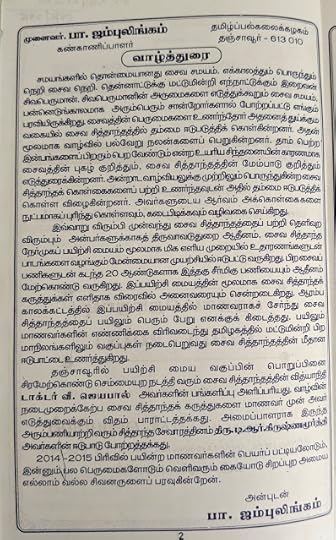 முனைவர். பா. ஜம்புலிங்கம் தமிழ்ப்பல்கலைக்கழகம்
கண்காணிப்பாளர் தஞ்சாவூர் - 613 010
வாழ்த்துரை
சமயங்களில் தொன்மையானது சைவ சமயம். எக்காலத்தும் பொருந்தும்
நெறி சைவ நெறி. தென்னாட்டுக்கு மட்டுமின்றி எந்நாட்டுக்கும் இறைவன்
சிவபெருமான். சிவபெருமானின் அருமைகளை எடுத்துக்கூறும் சைவ சமயம்,
பன்னெடுங்காலமாக அரும்பெரும் சான்றோர்களால் போற்றப்பட்டு எங்கும்
பரவியிருக்கிறது. சைவத்தின் பெருமைகளை உணர்ந்தோர் அதனைத் துய்க்கும்
வகையில் சைவ சித்தாந்தத்தில் தம்மை ஈடுபடுத்திக் கொள்கின்றனர். அதன்
மூலமாக வாழ்வில் பல்வேறு நலன்களைப் பெறுகின்றனர். தாம் பெற்ற
இன்பங்களைப் பிறரும் பெற வேண்டும் என்ற உயரிய சிந்தனையின் காரணமாக
சைவத்தின் புகழ் குறித்தும், சைவ சித்தாந்தத்தின் மேம்பாடு குறித்தும்
எடுத்துரைக்கின்றனர். அன்றாட வாழ்வியலுக்கு முற்றிலும் பொருந்துகின்ற சைவ
சித்தாந்தக் கொள்கைகளைப் பற்றி உணர்ந்தவுடன் அதில் தம்மை ஈடுபடுத்திக்
கொள்ள விழைகின்றனர். அவர்களுடைய ஆர்வம் அக்கொள்கைகளை
நுட்பமாகப் புரிந்து கொள்ளவும், கடைபிடிக்கவும் வழிவகை செய்கிறது.
இவ்வாறு விரும்பி முன்வந்து சைவ சித்தாந்தத்தைப் பற்றி தெளிவுற
விரும்பும் அன்பர்களுக்காகத் திருவாவடுதுறை ஆதீனம். சைவ சித்தாந்த
நேர்முகப் பயிற்சி மையம் மூலமாக மிக எளிய முறையில் உதாரணங்களுடன்
பாடங்களை வழங்கும் மேன்மையான முயற்சியில் ஈடுபட்டு வருகிறது. பிற சைவப்
பணிகளுடன் கடந்த 20 ஆண்டுகளாக இத்தகு சீர்மிகு பணியையும் ஆதீனம்
மேற்கொண்டு வருகிறது. இப்பயிற்சி மையத்தின் மூலமாக சைவ சித்தாந்தக்
கருத்துகள் எளிதாக விரைவில் அனைவரையும் சென்றடைகிறது. ஆரம்ப
காலகட்டத்தில் இப்பயிற்சி மையத்தில் மாணவராகச் சேர்ந்து சைவ
சித்தாந்தத்தைப் பயிலும் பெரும் பேறு எனக்குக் கிடைத்தது. பயிலும்
மாணவர்களின் எண்ணிக்கை விரிவடைந்து தமிழகத்தில் மட்டுமின்றி பிற
மாநிலங்களிலும் வகுப்புகள் நடைபெறுவது சைவ சித்தாந்தத்தின் மீதான
ஈடுபாட்டை உணர்த்துகிறது.
தஞ்சாவூரில் பயிற்சி மைய வகுப்பின் பொறுப்பினை
சிரமேற்கொண்டு செம்மையுற நடத்தி வரும் சைவ சித்தாந்தத்தின் வித்யாநிதி
டாக்டர் வீ. ஜெயபால் அவர்களின் பங்களிப்பு அளப்பரியது. வாழ்வின்
நடைமுறைக்கேற்ப சைவ சித்தாந்தக் கருத்துகளை மாணவர் முன் அவர்
எடுத்துவைக்கும் விதம் பாராட்டத்தக்கது. அமைப்பாளராக இருந்து
அரும்பணியாற்றிவரும் சித்தாந்த சேவாரத்தினம் திரு.டி.ஆர்.கிருஷ்ணமூர்த்தி
அவர்களின் ஈடுபாடு போற்றத்தக்கது.
2014 -2015 பிரிவில் பயின்ற மாணவர்களின் பெயர்ப் பட்டியலோடும்,
இன்னும் பல பெருமைகளோடும் வெளிவரும் கையேடு சிறப்புற அமைய
எல்லாம் வல்ல சிவனருளைப் பரவுகின்றேன்.
அன்புடன்
பா. ஜம்புலிங்கம்
2